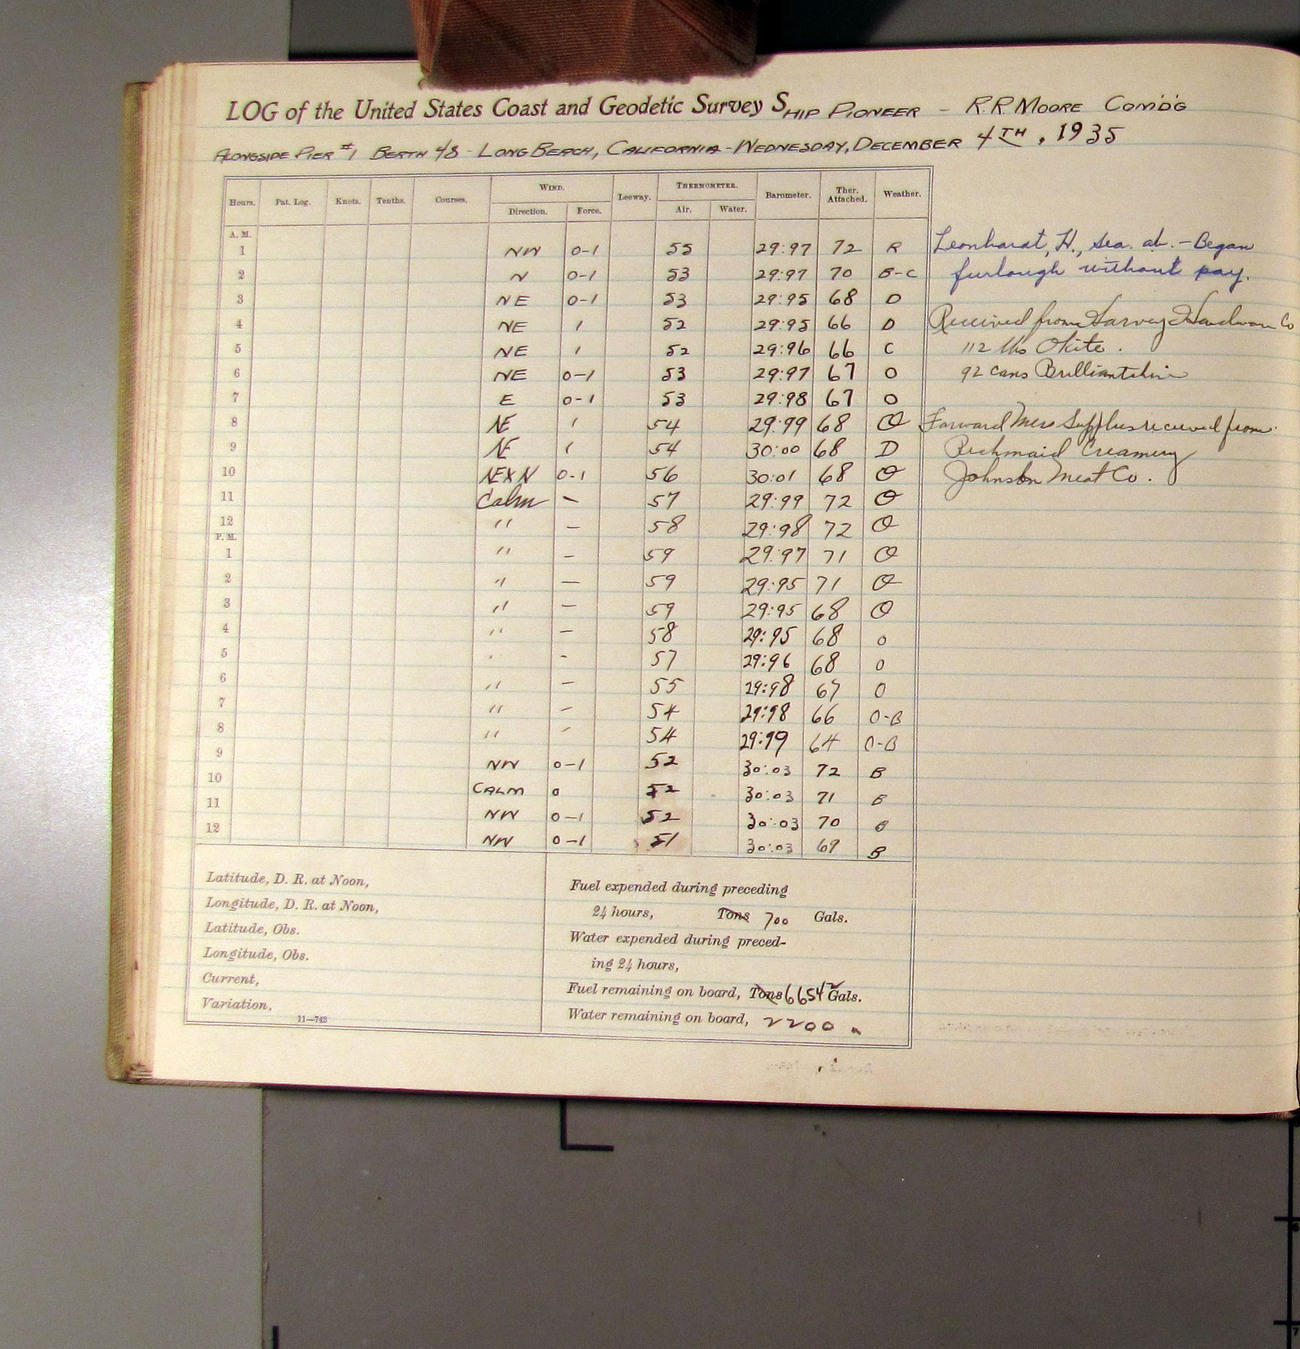 LOG of the United States Coast and Geodetic Survey SHIP PIONEER - R.R MOORE COMD'G
ALONGSIDE PIER #1 BERTH 48 - LONG BEACH, CALIFORNIA - WEDNESDAY, DECEMBER 4TH, 1935
Hours. Pat. Log. Knots. Tenths. Courses. WIND. Leeway. THERMOMETER. Barometer. Ther. Attached. Weather.
Direction. Force. Air. Water.
A. M.
1 NW 0-1 55 29:97 72 R Leonhardt, H., Sea. ab. - Began
2 N 0-1 53 29:97 70 B-C furlough without pay.
3 NE 0-1 53 29:95 68 D
4 NE 1 52 29:95 66 D Received from Harvey Hardware Co
5 NE 1 52 29:96 66 C 112 lbs Okite.
6 NE 0-1 53 29:97 67 O 92 cans Brilliantshine
7 E 0-1 53 29:98 67 O
8 NE 1 54 29:99 68 O Forward Mess Supplies received from
9 NE 1 54 30:00 68 D Richmaid Creamery
10 NEXN 0-1 56 30:01 68 O Johnston Meat Co.
11 Calm - 57 29:99 72 O
12 " - 58 29:98 72 O
P. M.
1 " - 59 29:97 71 O
2 " - 59 29:95 71 O
3 " - 59 29:95 68 O
4 " - 58 29:95 68 O
5 " - 57 29:96 68 O
6 " - 55 29:98 67 O
7 " - 54 29:98 66 O-B
8 " - 54 29:99 64 O-B
9 NW 0-1 52 30:03 72 B
10 CALM 0 52 30:03 71 B
11 NW 0-1 52 30:03 70 B
12 NW 0-1 51 30:03 69 B
Latitude, D. R. at Noon,
Longitude, D. R. at Noon,
Latitude, Obs.
Longitude, Obs.
Current,
Variation,
11—743
Fuel expended during preceding
24 hours, Tons 700 Gals.
Water expended during preced-
ing 24 hours,
Fuel remaining on board, Tons 6654 Gals.
Water remaining on board, 2200 "